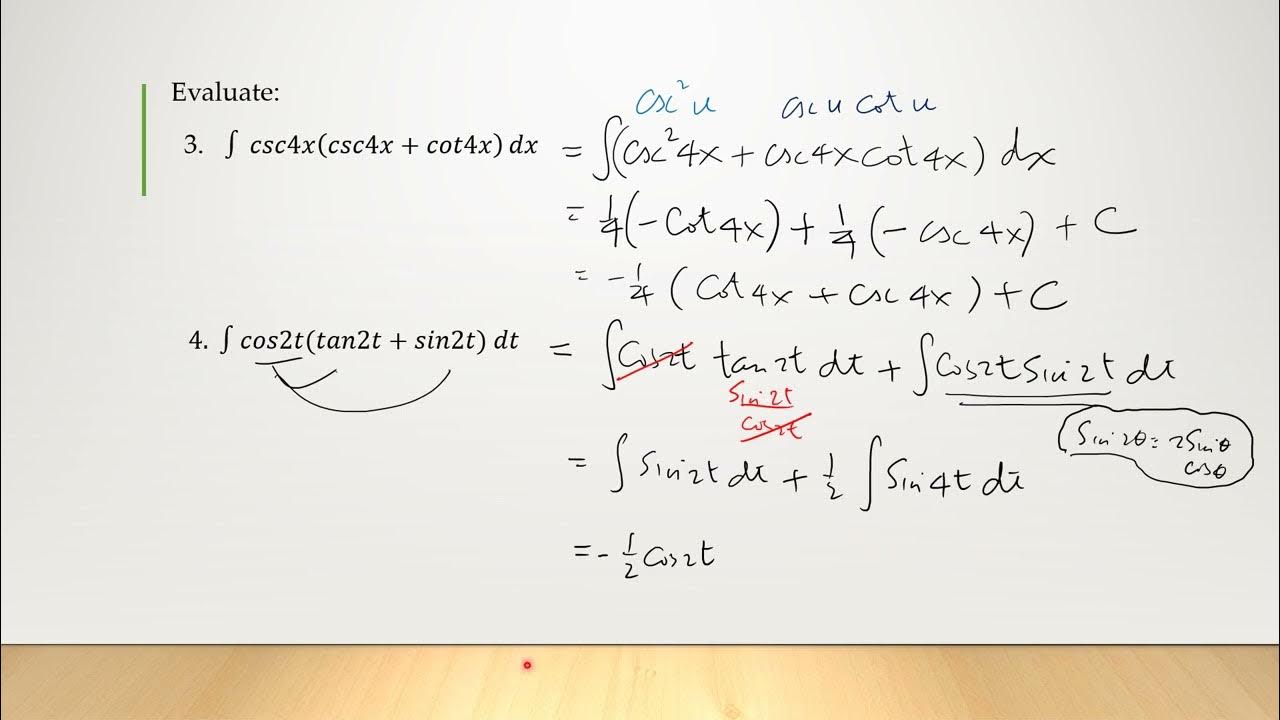 Evaluate:
csc²u    csc u cot u
3. ∫ csc4x(csc4x + cot4x) dx = ∫(csc²4x + csc4xcot4x) dx
= 1/4(-cot4x) + 1/4(-csc4x) + C
= -1/4(cot4x + csc4x) + C
4. ∫ cos2t(tan2t + sin2t) dt = ∫cos2t tan2t dt + ∫cos2t sin2t dt
sin2t
cos2t
sin2θ = 2sinθ
cosθ
= ∫ sin2t dt + 1/2 ∫ sin4t dt
= -1/2 cos2t